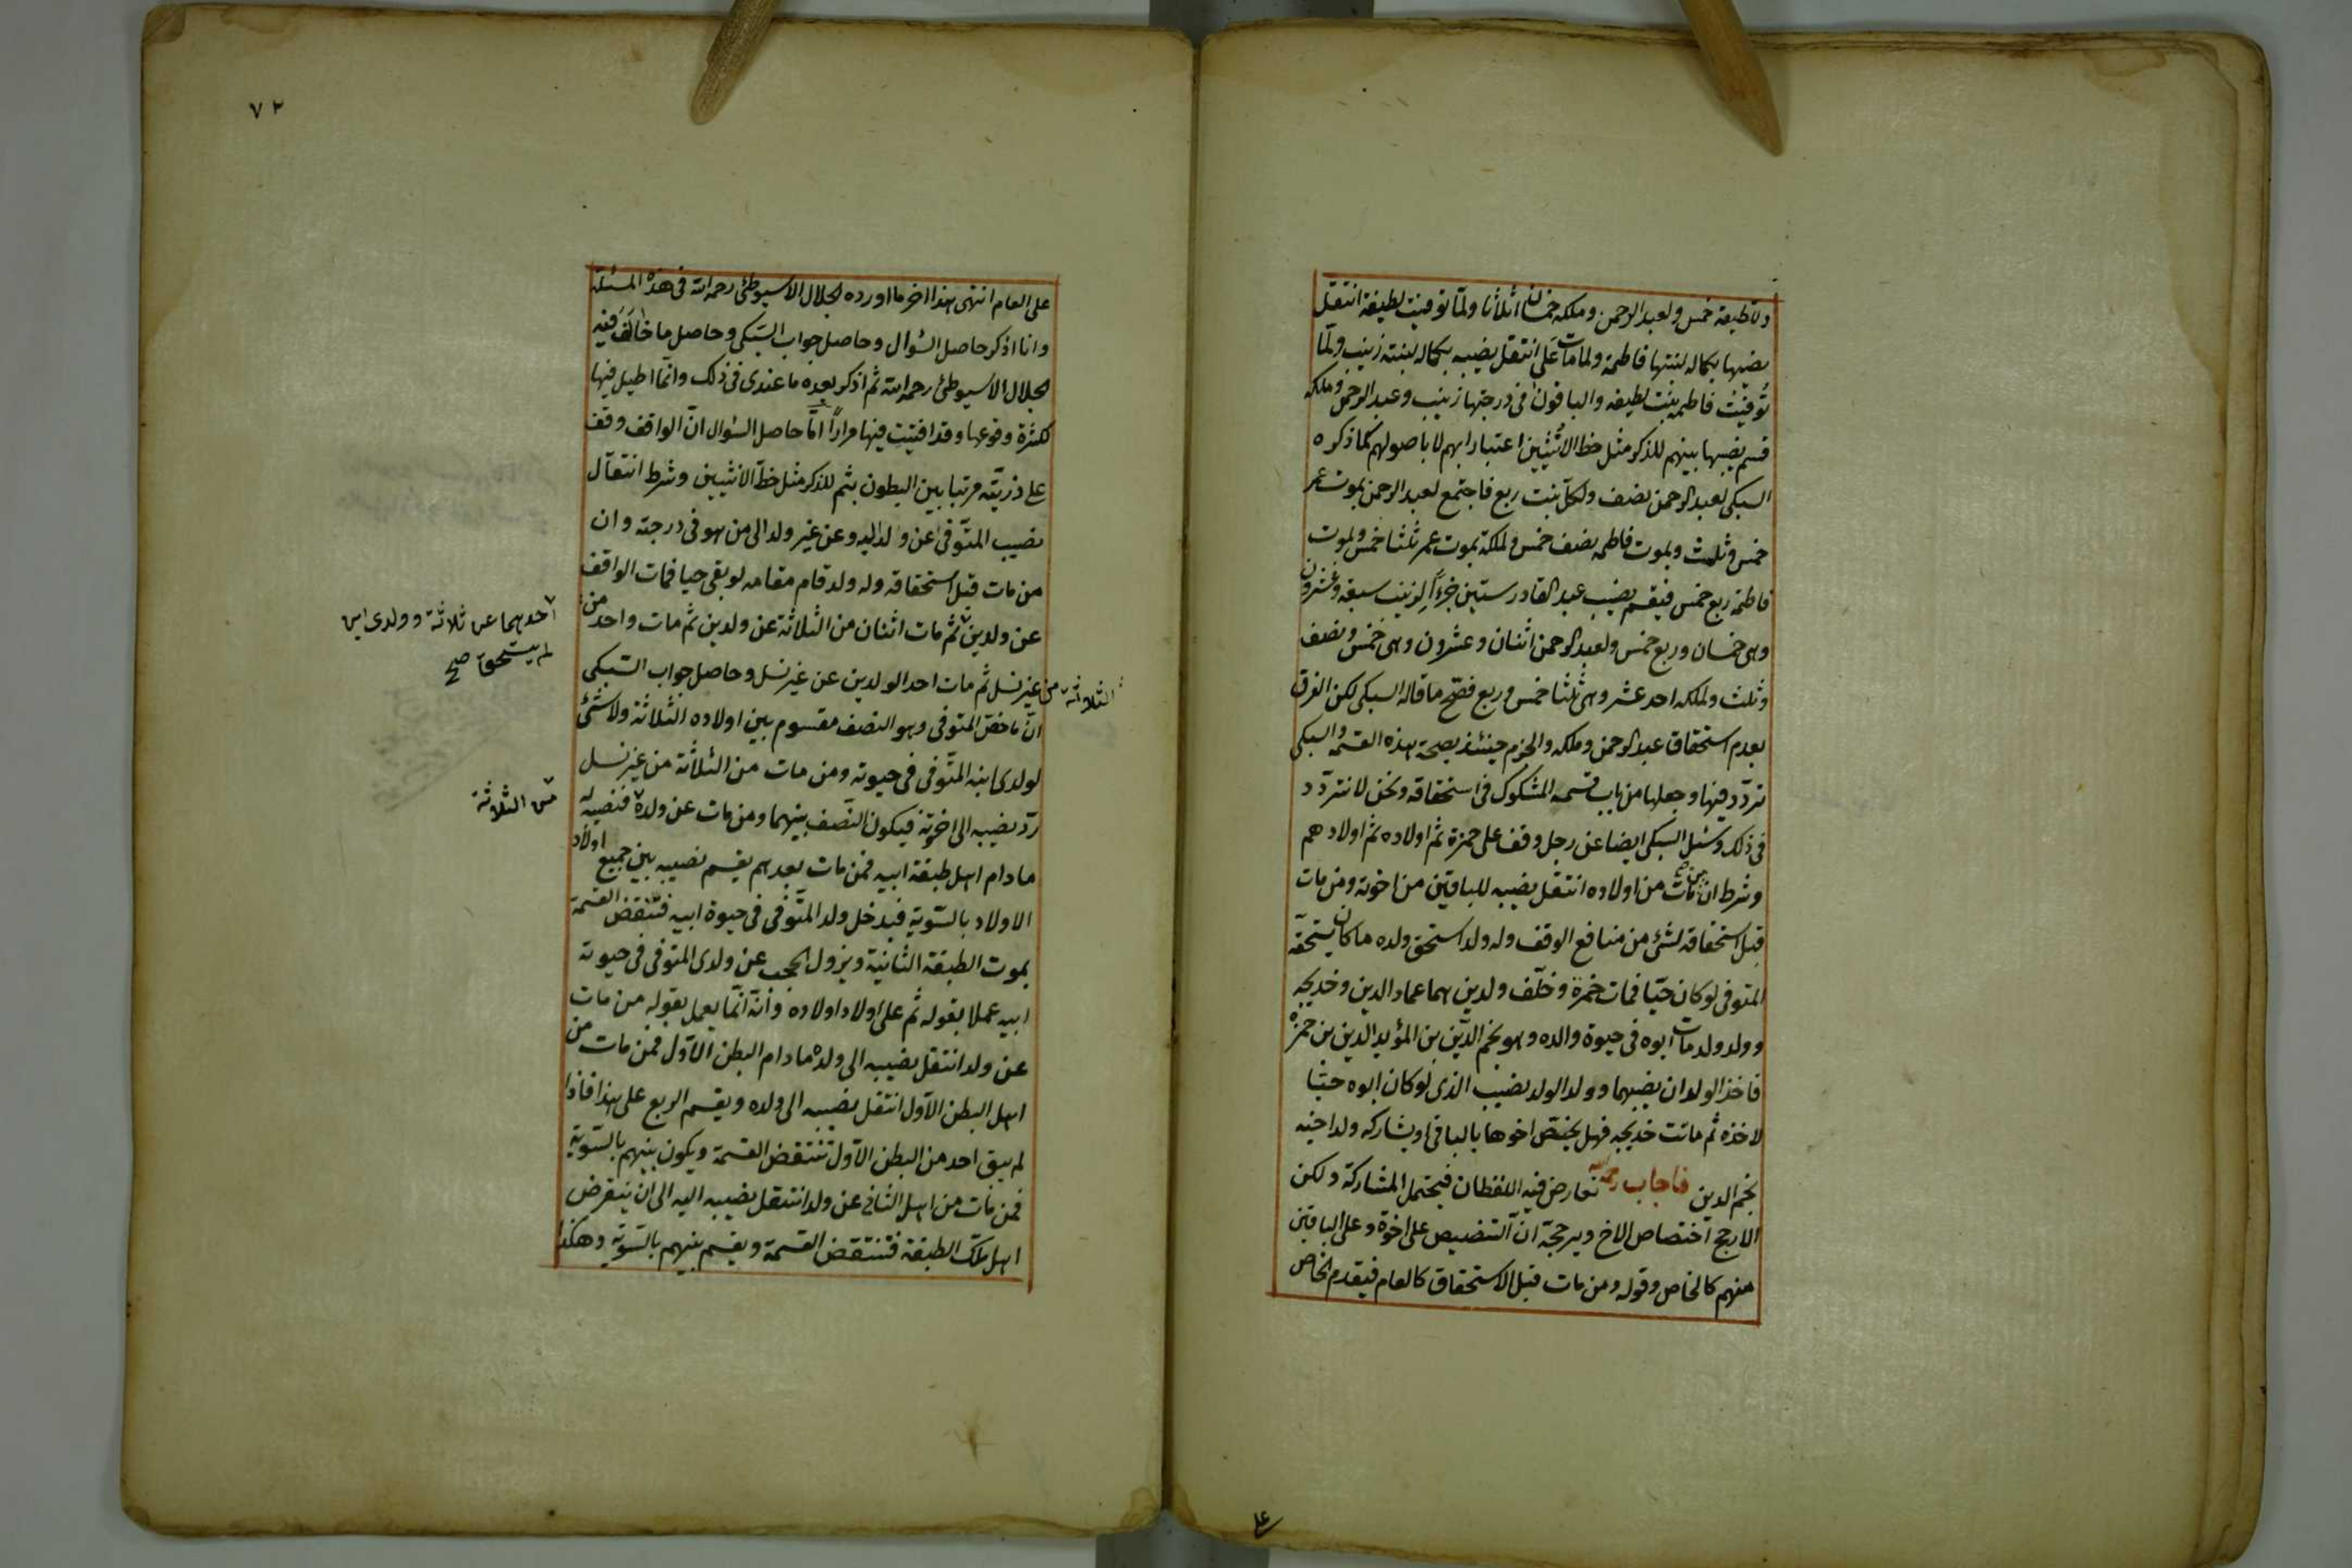 ولاطيفة خمس ولعبد الرحمن وملكه خمسان اثلاثا ولما توفيت لطيفة انتقل
نصيبها بكماله لبنتها فاطمة ولما مات على انتقل نصيبه بكماله لبنته زينب ولما
توفيت فاطمه بنت لطيفه والباقون فى درجتها زينب وعبد الرحمن وملكه
قسم نصيبها بينهم للذكر مثل حظ الانثيين اعتبارا بهم لا باصولهم كما ذكره
السبكى لعبد الرحمن نصف ولكل بنت ربع فاجتمع لعبد الرحمن بموت عمر
خمس وثلث وبموت فاطمه نصف خمس ولملكة بموت عمر ثلثا خمس وبموت
فاطمة ربع خمس فيقسم نصيب عبد القادر ستين جزءاً لزينب سبعة وعشرون
وهى خمسان وربع خمس ولعبد الرحمن اثنان وعشرون وهى خمس ونصف
وثلث ولملكه احد عشر وهى ثلثا خمس وربع فصح ما قاله السبكى لكن الفرق
بعدم استحقاق عبد الرحمن وملكه والجزم حينئذ بصحة هذه القسمة والسبكى
تردد فيها وجعلها من باب قسمه المشكوك فى استحقاقه ونحن لا نتردد
فى ذلك وسئل السبكى ايضا عن رجل وقف على حمزة ثم اولاده ثم اولادهم
وشرط ان من مات من اولاده انتقل نصيبه للباقين من اخوته ومن مات
قبل استحقاقه لشئ من منافع الوقف وله ولد استحق ولده ما كان يستحقه
المتوفى لو كان حيا فمات حمزة وخلف ولدين هما عماد الدين وخديجه
وولد ولد مات ابوه فى حيوة والده وهو نجم الدين بن المؤيد الدين بن حمزة
فاخذ الولدان نصيبهما وولد الولد نصيب الذى لو كان ابوه حيا
لاخذه ثم ماتت خديجه فهل يختص اخوها بالباقى او يشاركه ولد اخيه
نجم الدين فاجاب رحمه الله تعارض فيه اللفظان فيحتمل المشاركة ولكن
الارجح اختصاص الاخ ويرجحه ان التنصيص على اخوة وعلى الباقين
منهم كالخاص وقوله ومن مات قبل الاستحقاق كالعام فيقدم الخاص
على
٧٢
على العام انتهى هذا اخر ما اورده الجلال الاسيوطى رحمه الله فى هذه المسئلة
وانا اذكر حاصل السؤال وحاصل جواب السبكى وحاصل ما خالف فيه
الجلال الاسيوطى رحمه الله ثم اذكر بعده ما عندى فى ذلك وانما اطيل فيها
لكثرة وقوعها وقد افتيت فيها مراراً امّا حاصل السؤال ان الواقف وقف
على ذريته مرتبا بين البطون بثم للذكر مثل حظ الانثيين وشرط انتقال
نصيب المتوفى عن ولد اليه وعن غير ولد الى من هو فى درجته وان
من مات قبل استحقاقه وله ولد قام مقامه لو بقى حيا فمات الواقف
عن ولدين ثم مات اثنان من الثلاثة عن ولدين ثم مات واحد من
احدهما عن ثلاثة وولدى ابن
لم يستحق صح
الثلاثة من غير نسل ثم مات احد الولدين عن غير نسل وحاصل جواب السبكى
ان ما خص المتوفى وهو النصف مقسوم بين اولاده الثلاثة ولا شئ
لولدى ابنه المتوفى فى حيوته ومن مات من الثلاثة من غير نسل
ردّ نصيبه الى اخوته فيكون النصف بينهما ومن مات عن ولد فنصيبه له
من الثلاثة
ما دام اهل طبقة ابيه فمن مات بعدهم يقسم نصيبه بين جميع اولاد
الاولاد بالسوية فيدخل ولد المتوفى فى حيوة ابيه فتنقض القسمة
بموت الطبقة الثانية ويزول الحجب عن ولدى المتوفى فى حيوته
ابيه عملا بقوله ثم على اولاد اولاده وانه انما يعمل بقوله من مات
عن ولد انتقل نصيبه الى ولده ما دام البطن الاول فمن مات من
اهل البطن الاول انتقل نصيبه الى ولده ويقسم الربع على هذا فاذا
لم يبق احد من البطن الاول تنتقض القسمة ويكون بينهم بالسوية
فمن مات من اهل الثانى عن ولد انتقل نصيبه اليه الى ان ينقرض
اهل تلك الطبقة فتنتقض القسمة ويقسم بينهم بالسوية وهكذا